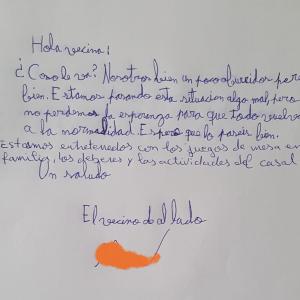 Hola vecina!
¿Como le va? Nosotros bien un poco aburridos pero
bien. Estamos pasando esta situacion algo mal, pero
no perdemos la esperanza para que todo vuelva
a la normalidad. Espero que lo paseis bien.
Estamos entretenedos con los juegos de mesa en
family, los deberes y las actividades del casal
Un saludo
El vecino dal lado